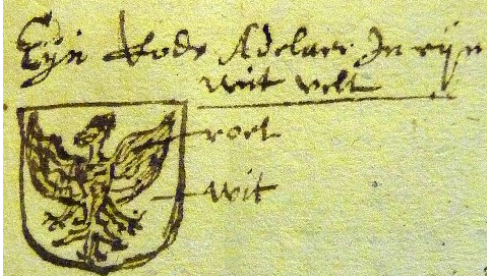 Eyn Rode Adelaer In eyn
wit velt
roet
wit